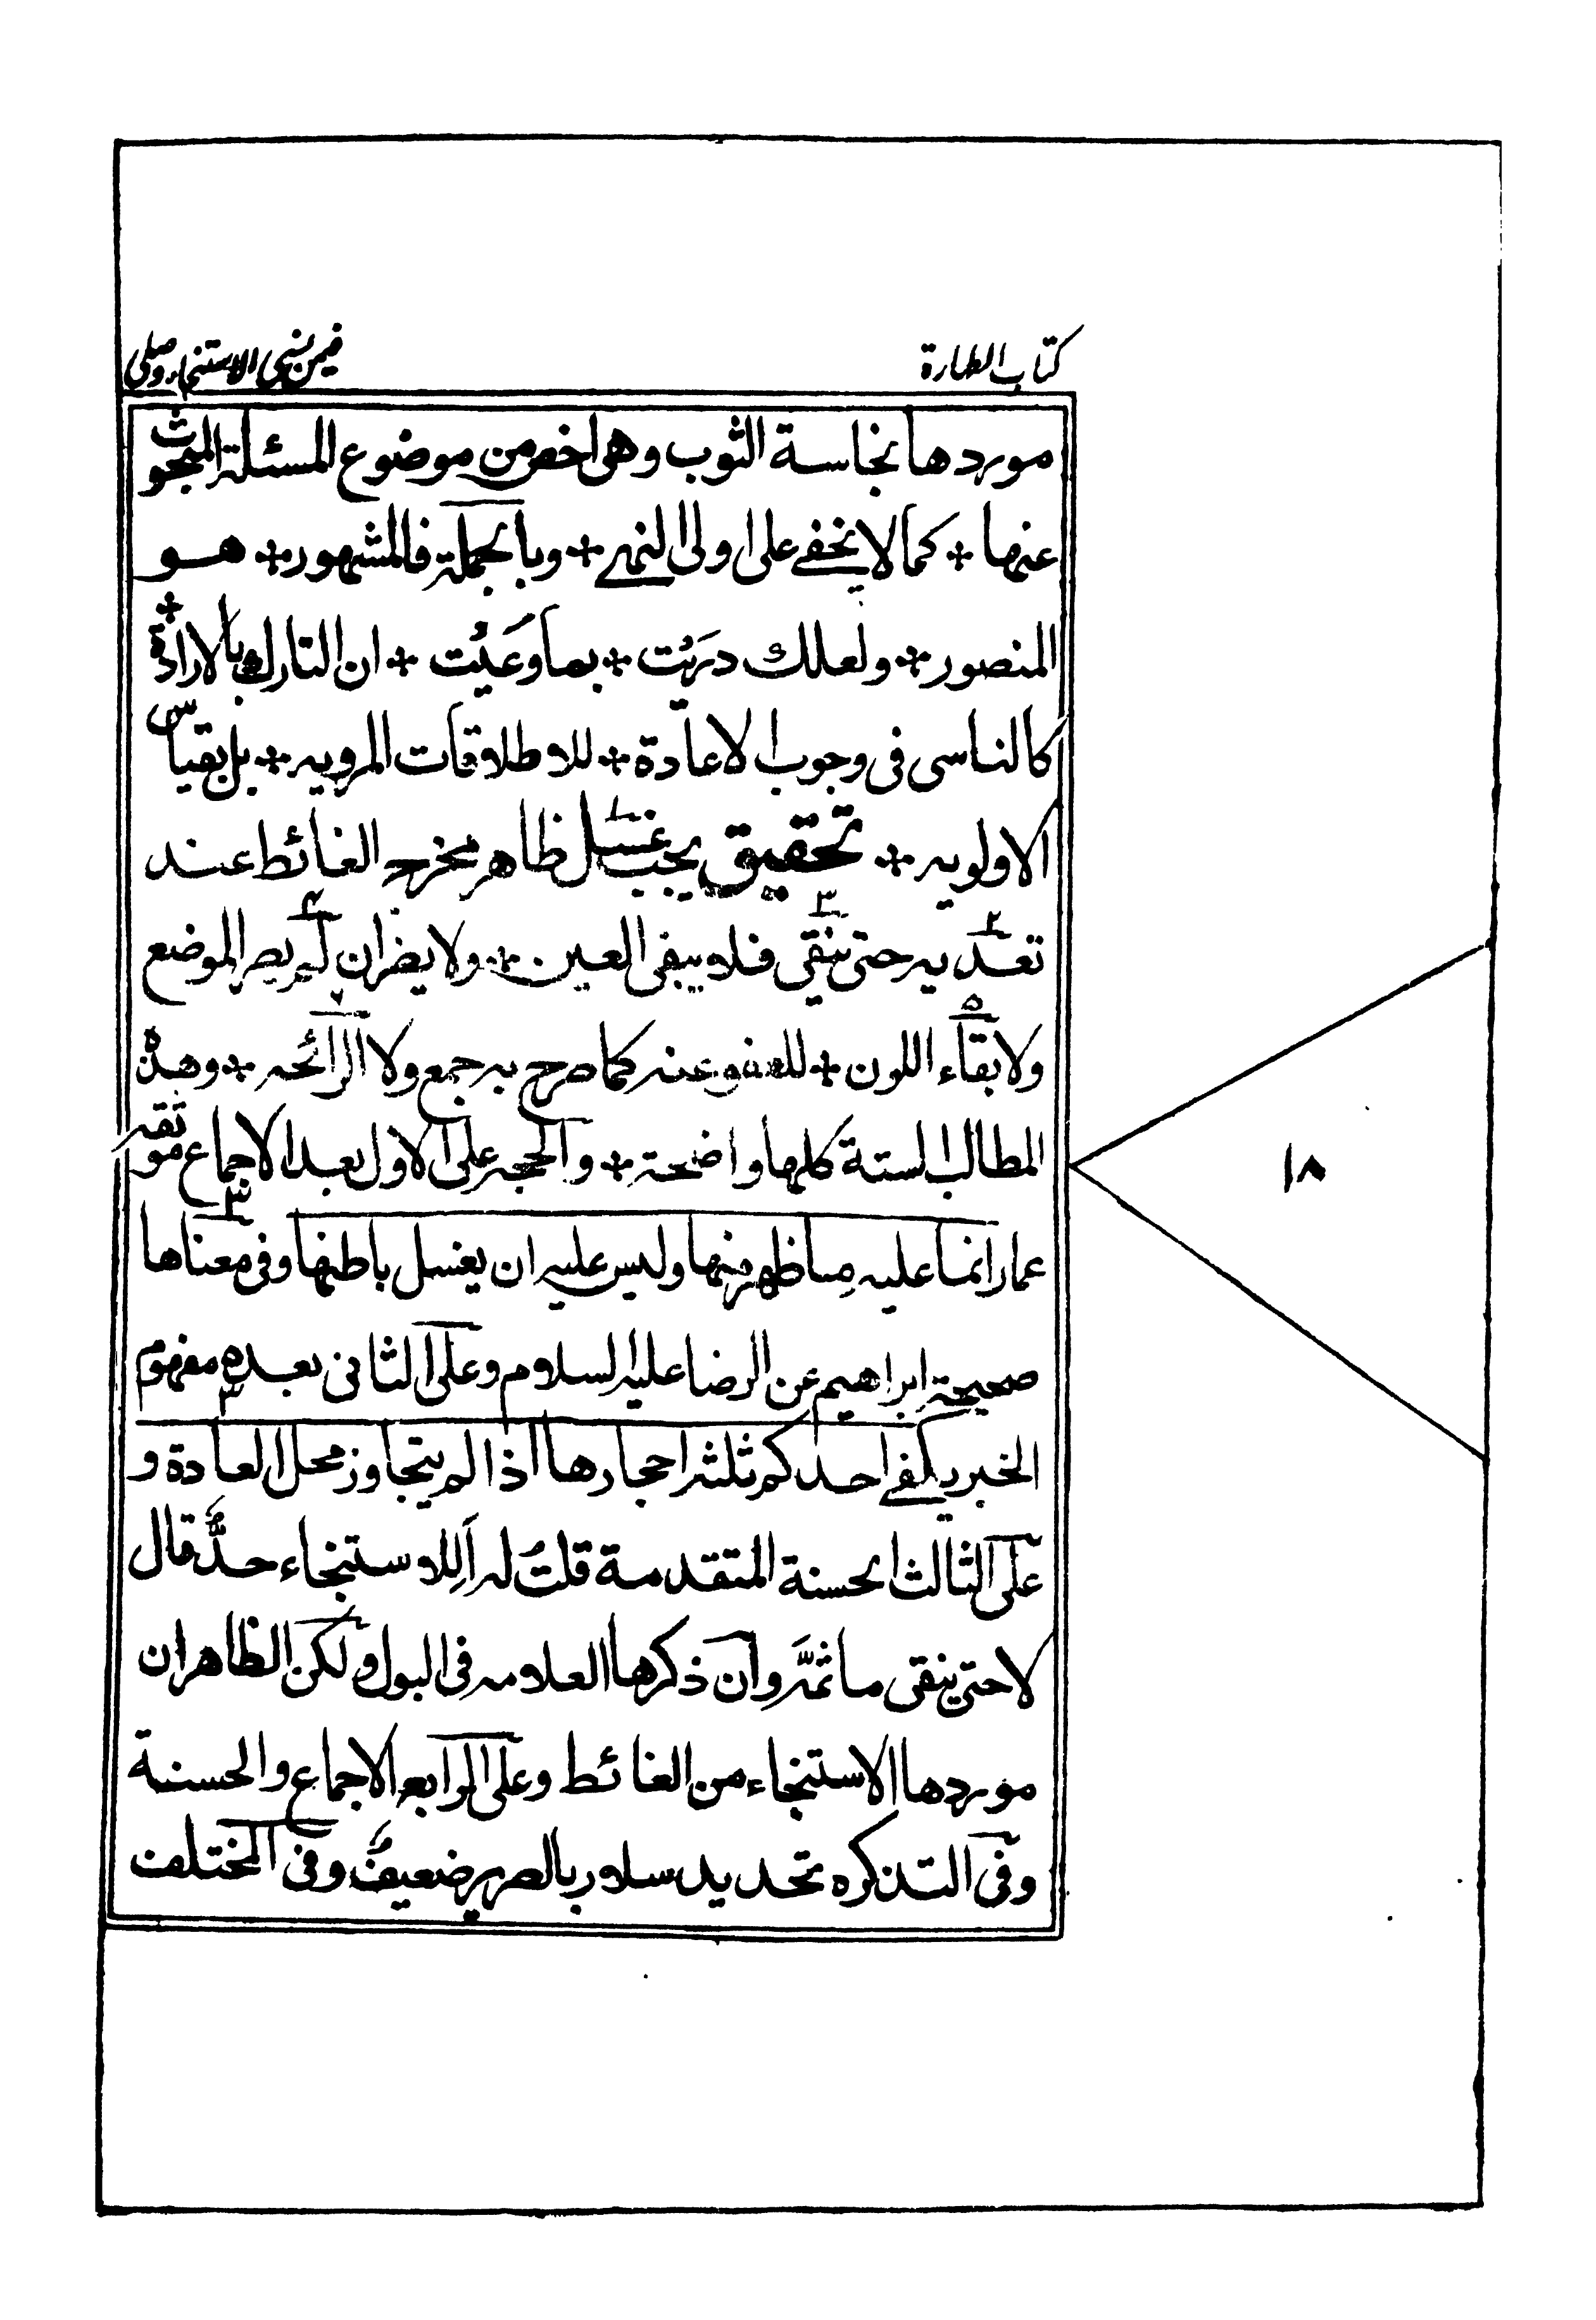 كتاب الطهارة
فيمن نسي الاستنجاء وصلى
موردها نجاسة الثوب وهى اخص من موضوع المسئلة المبحوث
عنها ÷ كما لا يخفى على اولى النهى ÷ وبالجملة فالمشهور ÷ هو
المنصور ÷ ولعلك دريْت ÷ بما وعَيْت ÷ ان التارك بالارادة ÷
كالناسى فى وجوب الاعادة ÷ للاطلاقات المرويه ÷ بل بقياس
الاولويه ÷ تحقيق يجب غسل ١ ظاهر مخرج الغائط عند
تعديه ٢ حتى ينقى ٣ فلا يبقى العين ÷ ولا يضر ان لم ٤ يصر الموضع
ولا بقاء ٥ اللون ÷ للعفو عنه كما صرح به جمع ولا الرائحه ٦ ÷ وهذه
المطالب الستة كلها واضحة ÷ والحجه على الاول بعد الاجماع موثقه
عمار انما عليه ما ظهر منها وليس عليه ان يغسل باطنها وفى معناها
صحيحة ابراهيم عن الرضا عليه السلام وعلى الثانى بعده مفهوم
الخبر يكفى احدكم ثلثه احجار ها اذا لم يتجاوز محل العادة و
على الثالث الحسنة المتقدمة قلتُ له اَلِلاستنجاء حدٌّ قال
لا حتى ينقى ما ثَمَّه وان ذكرها العلامه فى البول ولكن الظاهر ان
موردها الاستنجاء من الغائط وعلى الرابع الاجماع والحسنة
وفى التذكره تحديد سلار بالصرير ضعيف وفى المختلف
١٨